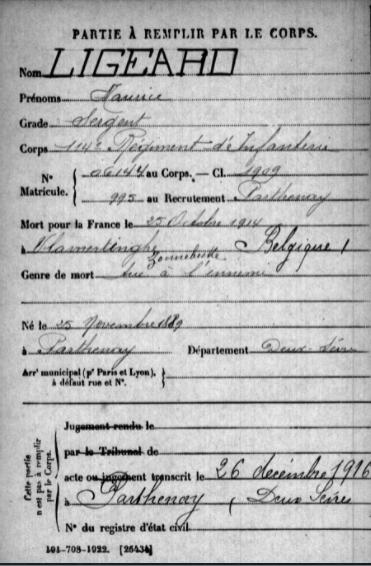 PARTIE À REMPLIR PAR LE CORPS.
Nom LIGEARD
Prénoms Maurice
Grade Sergent
Corps 114e Régiment d'Infanterie
N° Matricule. { 06147 au Corps. — Cl. 1909
995 au Recrutement Parthenay
Mort pour la France le 25 Octobre 1914
à Vlamertinghe Zonnebeke (Belgique)
Genre de mort tué à l'ennemi
Né le 25 Novembre 1889
à Parthenay Département Deux-Sèvres
Arrt municipal (pr Paris et Lyon), à défaut rue et N°. }
Cette partie n'est pas à remplir par le Corps.
Jugement rendu le
par le Tribunal de
acte ou jugement transcrit le 26 décembre 1916
à Parthenay (Deux Sèvres
N° du registre d'état civil
101-708-1922. [26434]